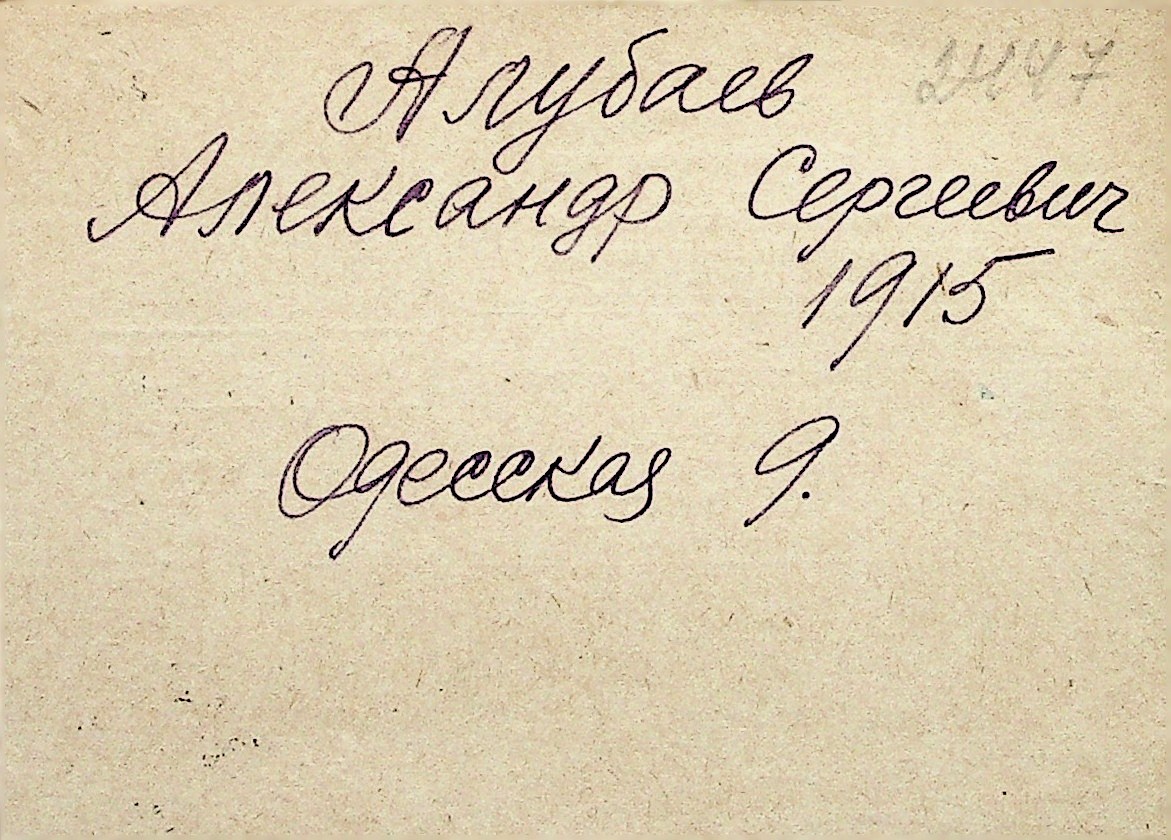 Алубаев
Александр Сергеевич
1915
Одесская 9.